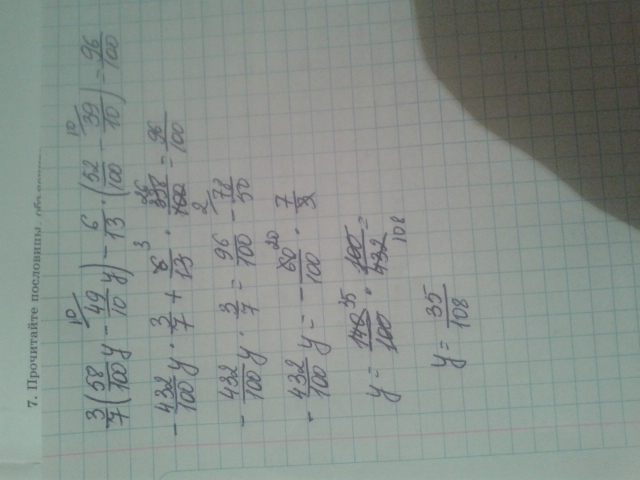 7. Прочитайте пословицы,
3/7 (58/100 y - 49/10 y) - 6/13 · (52/100 - 39/10) = 96/100
- 432/100 y · 3/7 + 6/13 · 338/100 = 96/100
- 432/100 y · 3/7 = 96/100 - 78/50
- 432/100 y = - 60/100 · 7/3
y = 140/100 · 100/432 =
y = 35/108